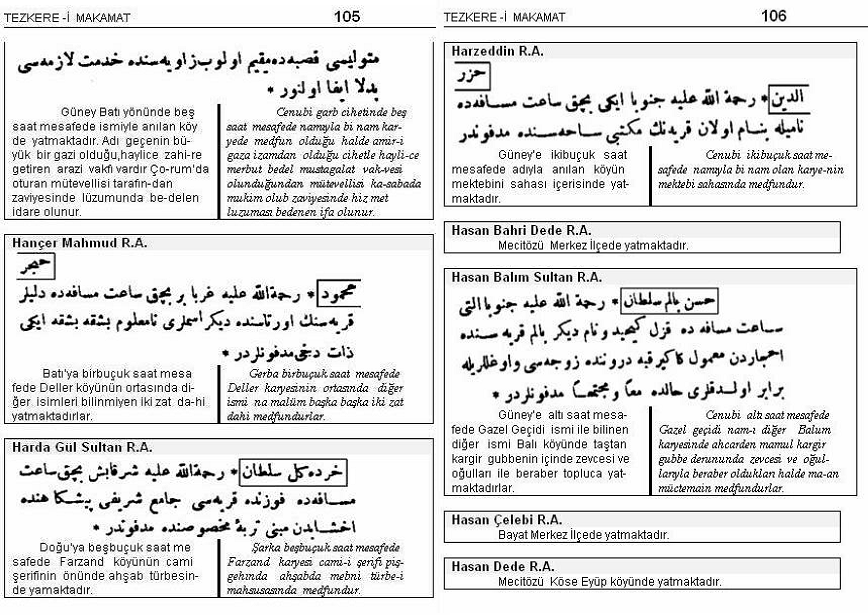 TEZKERE -İ MAKAMAT 105
متوليسى قصبه ده مقيم اولوب زاويه سنده خدمت لازمه سى
بدلا ايفا اولنور *
Güney Batı yönünde beş
saat mesafede ismiyle anılan köy
de yatmaktadır. Adı geçenin bü-
yük bir gazi olduğu,haylice zahi-re
getiren arazi vakfı vardır Ço-rum'da
oturan mütevellisi tarafın-dan
zaviyesinde lüzumunda be-delen
idare olunur.
Cenubi garb cihetinde beş
saat mesafede namıyla bi nam kar-
yede medfun olduğu halde amir-i
gaza izamdan olduğu cihetle hayli-ce
merbut bedel mustagalat vak-vesi
olunduğundan mütevellisi ka-sabada
mukim olub zaviyesinde hiz met
luzuması bedenen ifa olunur.
Hançer Mahmud R.A.
حنجر
محمود * رحمة الله عليه غربا بر بچق ساعت مسافه ده دليلر
قريه سنك اورتاسنده ديكر اسملرى نامعلوم بشقه بشقه ايكى
ذات دخى مدفونلردر *
Batı'ya birbuçuk saat mesa
fede Deller köyünün ortasında di-
ğer isimleri bilinmiyen iki zat da-hi
yatmaktadırlar.
Gerba birbuçuk saat mesafede
Deller karyesinin ortasında diğer
ismi na malüm başka başka iki zat
dahi medfundurlar.
Harda Gül Sultan R.A.
خرده كل سلطان * رحمة الله عليه شرقا بش بچق ساعت
مسافه ده فوزنده قريه سى جامع شريفى پيشكاهنده
اخشابدن مبنى تربۀ مخصوصنده مدفوندر *
Doğu'ya beşbuçuk saat me
safede Farzand köyünün cami
şerifinin önünde ahşab türbesin-
de yamaktadır.
Şarka beşbuçuk saat mesafede
Farzand karyesi cami-i şerifi piş-
gehında ahşabda mebni türbe-i
mahsusasında medfundur.
TEZKERE -İ MAKAMAT 106
Harzeddin R.A.
حزر
الدين * رحمة الله عليه جنوبا ايكى بچق ساعت مسافه ده
ناميله بنام اولان قريه نك مكتبى ساحه سنده مدفوندر
Güney'e ikibuçuk saat
mesafede adıyla anılan köyün
mektebini sahası içerisinde yat-
maktadır.
Cenubi ikibuçuk saat me-
safede namıyla bi nam olan karye-nin
mektebi sahasında medfundur.
Hasan Bahri Dede R.A.
Mecitözü Merkez İlçede yatmaktadır.
Hasan Balım Sultan R.A.
حسن بالم سلطان * رحمة الله عليه جنوبا التى
ساعت مسافه ده قزل كيجيد و نام ديكر بالم قريه سنده
احجاردن معمول كاكير قبه دروننده زوجه سى واوغللريله
برابر اولدقلرى حالده معاً و مجتمعاً مدفونلردر *
Güney'e altı saat mesa-
fede Gazel Geçidi ismi ile bilinen
diğer ismi Balı köyünde taştan
kargir gubbenin içinde zevcesi ve
oğulları ile beraber topluca yat-
maktadırlar.
Cenubi altı saat mesafede
Gazel geçidi nam-ı diğer Balum
karyesinde ahcarden mamul kargir
gubbe derununda zevcesi ve oğul-
larıyla beraber oldukları halde ma-an
müctemain medfundurlar.
Hasan Çelebi R.A.
Bayat Merkez İlçede yatmaktadır.
Hasan Dede R.A.
Mecitözü Köse Eyüp köyünde yatmaktadır.